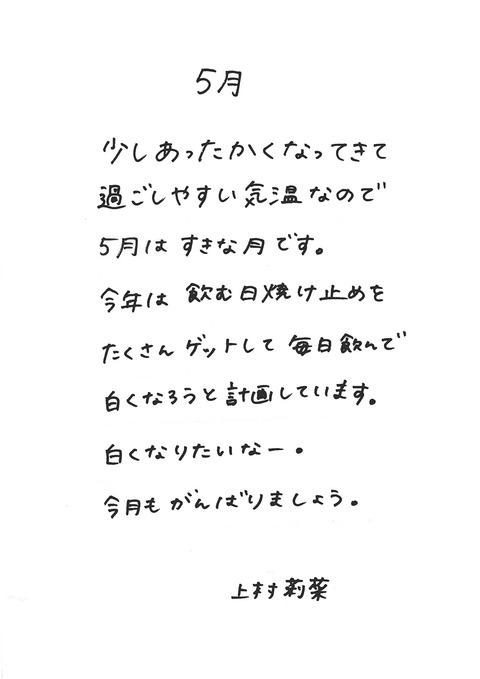 5月
少しあったかくなってきて
過ごしやすい気温なので
5月は すきな月です。
今年は 飲む日焼け止めを
たくさん ゲットして 毎日飲んで
白くなろうと計画しています。
白くなりたいなー。
今月も がんばりましょう。
上村莉菜